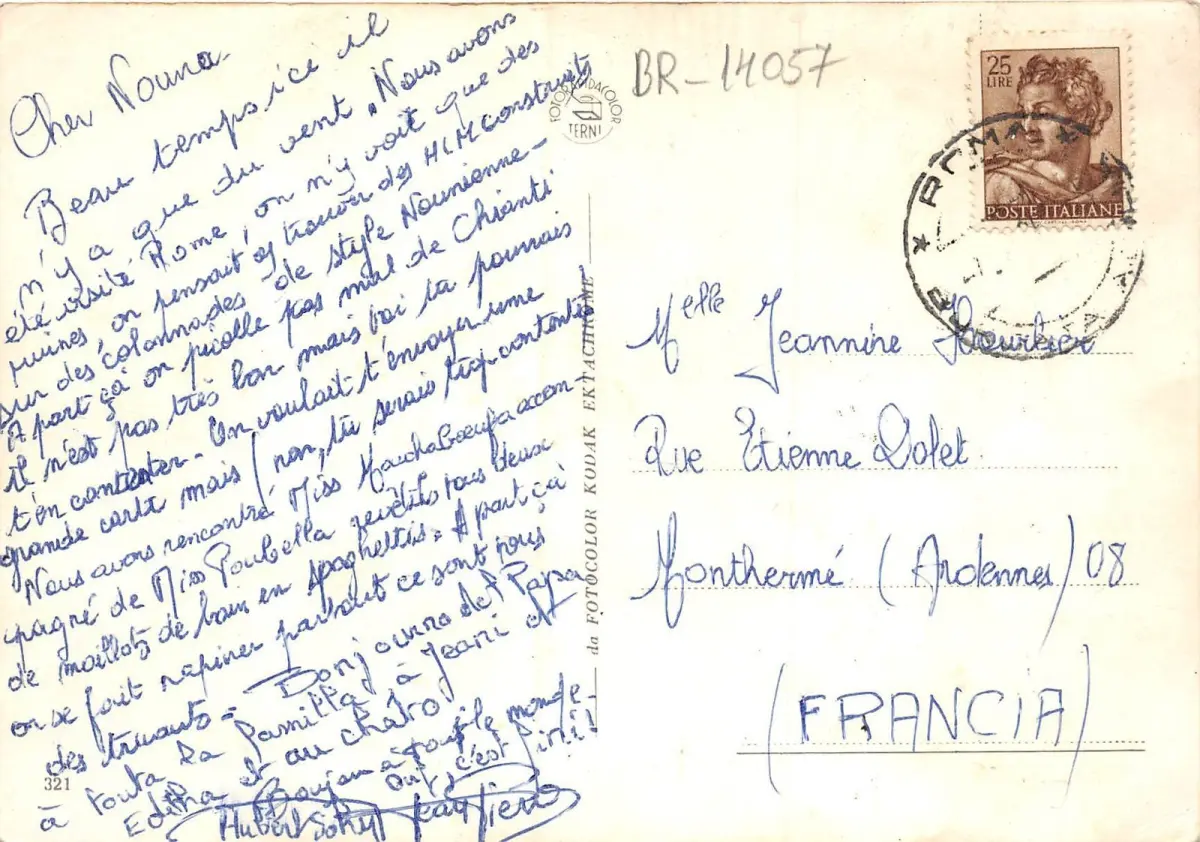 Cher Nouna
Beau temps ice il
n'y a que du vent. Nous avons
été visité Rome, on n'y voit que des
ruines, on pensait y trouver des HLM construits
sur des colonnades de style Nounienne-
A part çà on picolle pas mal de Chianti
il n'est pas très bon mais toi tu pourrais
t'en contenter - On voulait t'envoyer une
grande carte mais non, tu serais trop contente
Nous avons rencontré Miss accom-
pagné de Miss Poubella revêtus tous deux
de maillots de bain en spaghettis. A part çà
on se fait rapiner partout ce sont tous
des truants - Bonjourno del Papa
à touta la familla à Jeani et
Editha et au chato
Bonjour à tout le monde-
Ouf c'est fini!
Hubert Jean Pierre
321
FOTORAPIDACOLOR
TERNI
da FOTOCOLOR KODAK EKTACHROME
BR-14057
25
LIRE
POSTE ITALIANE
ROMA
Melle Jeannine
Rue Etienne Dolet
Monthermé (Ardennes) 08
(FRANCIA)